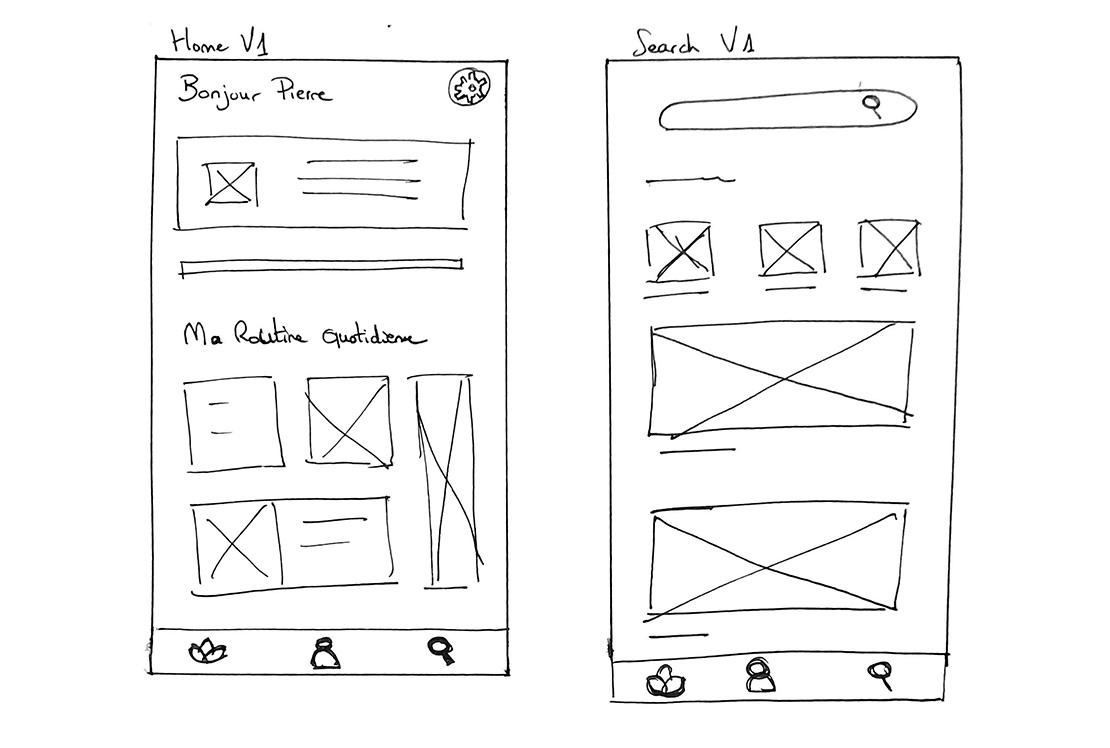 Home V1
Bonjour Pierre
Ma Routine quotidienne
Search V1